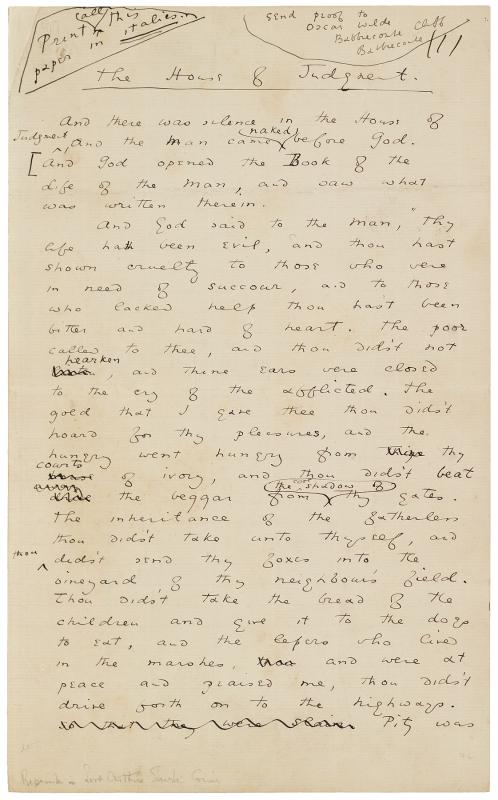 Print all this
paper in italics
send proof to
Oscar Wilde
Babbacombe Cliff
Babbacombe
The House of Judgment.
And there was silence in the House of
Judgment, And the Man came naked before God.
[And God opened the Book of the
life of the Man, and saw what
was written therein.
And God said to the Man, "Thy
life hath been Evil, and thou hast
shown cruelty to those who were
in need of succour, and to those
who lacked help thou hast been
bitter and hard of heart. The poor
called to thee, and thou didst not
hearken, and thine Ears were closed
to the cry of the afflicted. The
gold that I gave thee thou didst
hoard for thy pleasures, and the
hungry went hungry from thy
courts of ivory, and thou didst beat
away the beggar from the shadow of thy gates.
The inheritance of the fatherless
thou didst take unto thyself, and
thou didst send thy foxes into the
vineyard of thy neighbour's field.
Thou didst take the bread of the
children and give it to the dogs
to Eat, and the lepers who lived
in the marshes, and were at
peace and praised me, thou didst
drive forth on to the highways.
Pity was